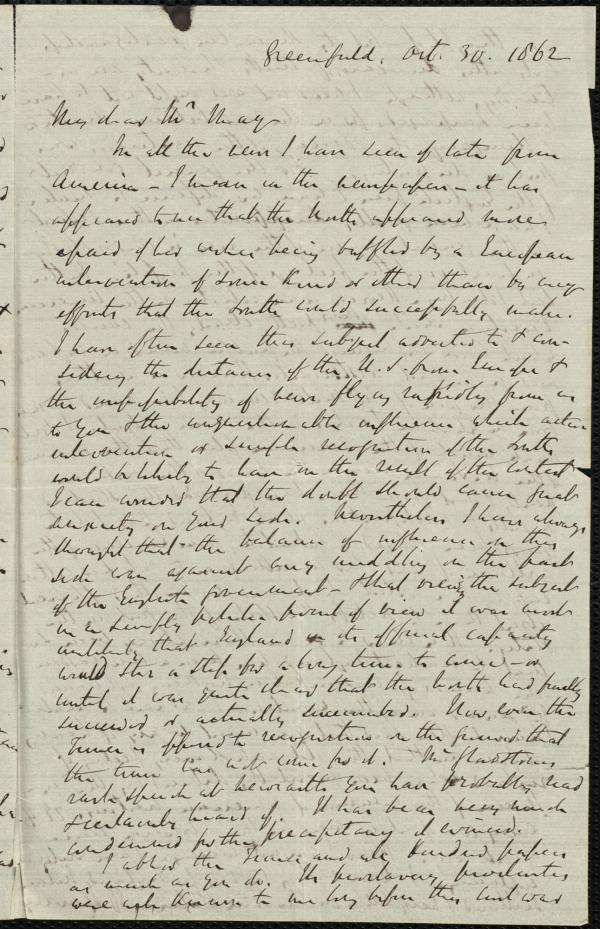 Greenfield. Oct. 30. 1862
My dear Mr May
In all the news I have seen of late from
America – I mean in the newspapers – it has
appeared to me that the North appeared more
afraid of her wishes being baffled by a European
intervention of some kind or other than by any
efforts that the South could successfully make.
I have often seen this subject adverted to & con-
sidering the distance of the U.S. from Europe &
the impossibility of news flying rapidly from us
to you & the unquestionable influence which active
intervention or simple recognition of the South
would be likely to have on the result of the contest
I can wonder that the doubt should cause great
anxiety on your side. Nevertheless I have always
thought that the balance of influence on this
side was against any meddling on the part
of the English government – & that viewing the subject
in a simply point of view it was most
unlikely that England in its official capacity
would stir a step for a long time to come – or
until it was quite clear that the North had finally
succeeded or actually succumbed. Now, even the
Times is opposed to recognition on the ground that
the time has not come for it. Mr Gladstone's
rash speech at Newcastle you have probably read
& certainly heard of. It has been very much
condemned for the precipitancy it evinced.
I abhor the Times and all kindred papers
as much as you do. Its proslavery proclivities
were well known to me long before this